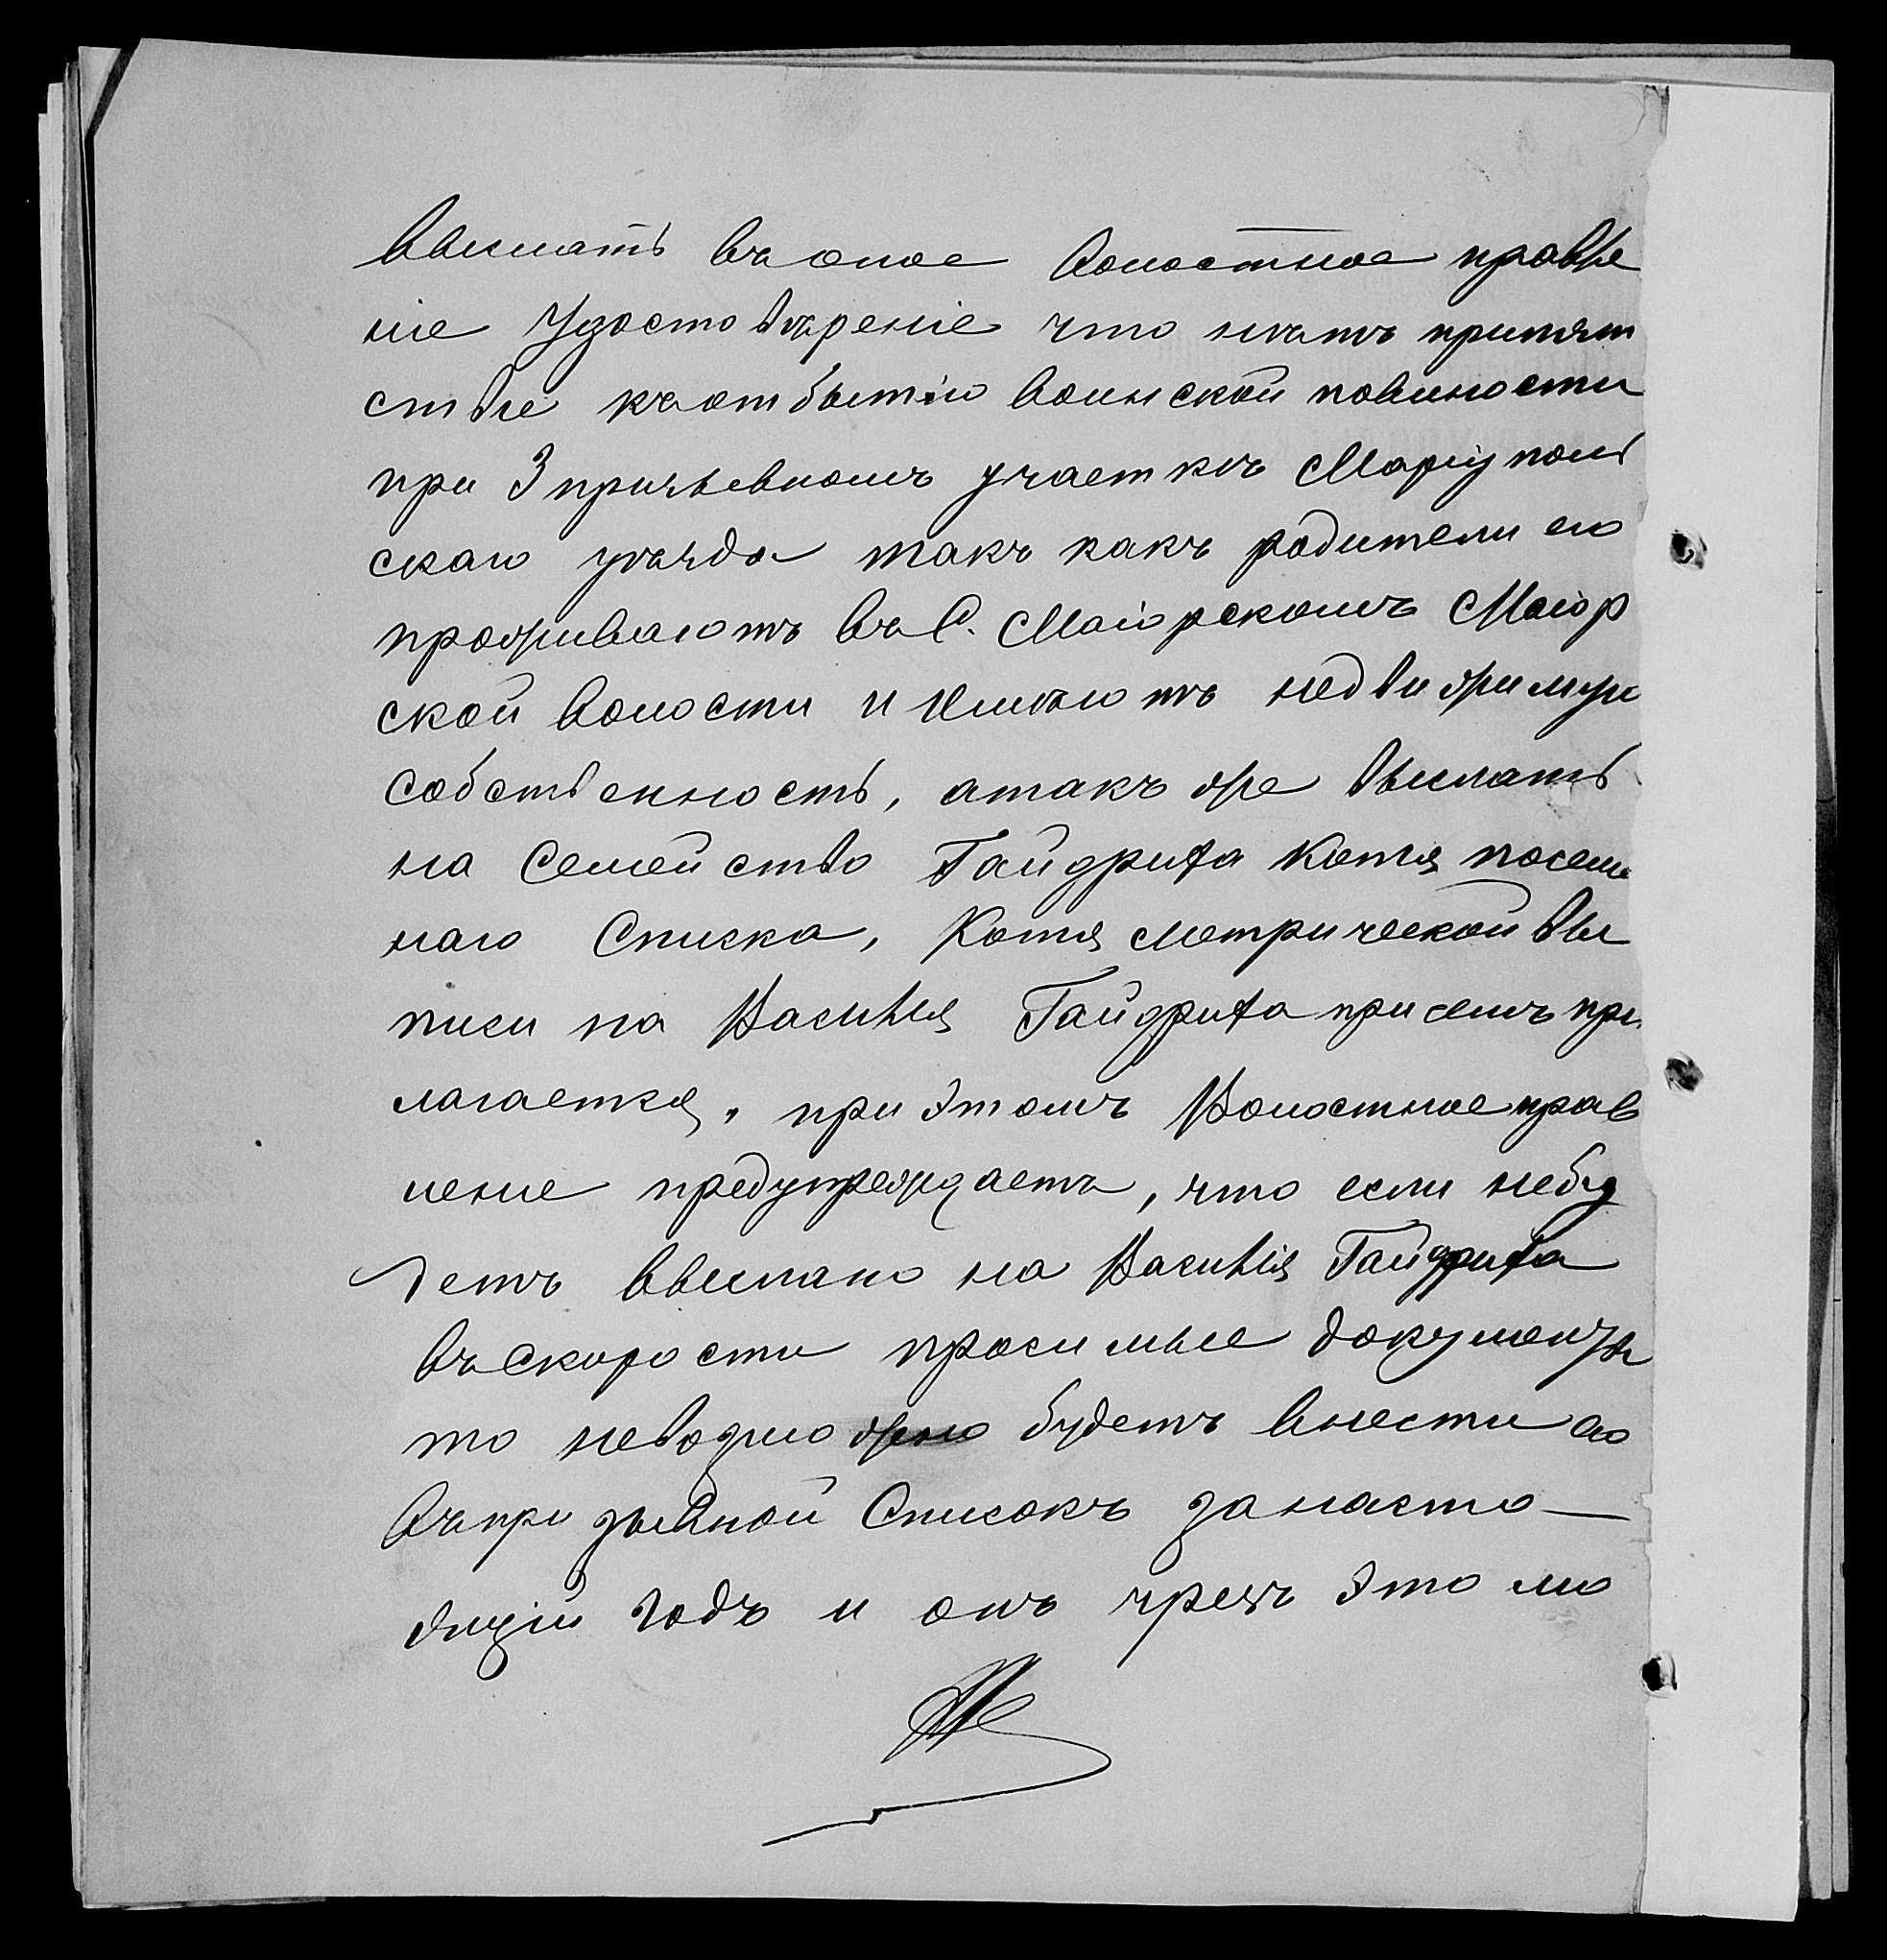 Выслать въ оное Волостное правле
ніе Удостовѣреніе что нѣтъ припят
ствіе къ отбытію воинской повиности
при 3 призывномъ участкѣ Маріуполь
скаго уѣзда такъ какъ родители его
проживаютъ въ С. Маіорскомъ Маіор
ской волости и имѣютъ недвижимую
собственность, а такъ же выслать
на Семейство Гайдрига Копія посемей
наго Списка, Копія метрической вы
писи на Василія Гайдрига при семъ при
лагается, при этомъ Волостное прав
леніе предупреждаетъ, что если небу
детъ выслано на Василія Гайдрига
въ скорости просимые документы
то невозможно будетъ внести его
въ призывной Списокъ за насто—
ящій годъ и онъ чрезъ это мо